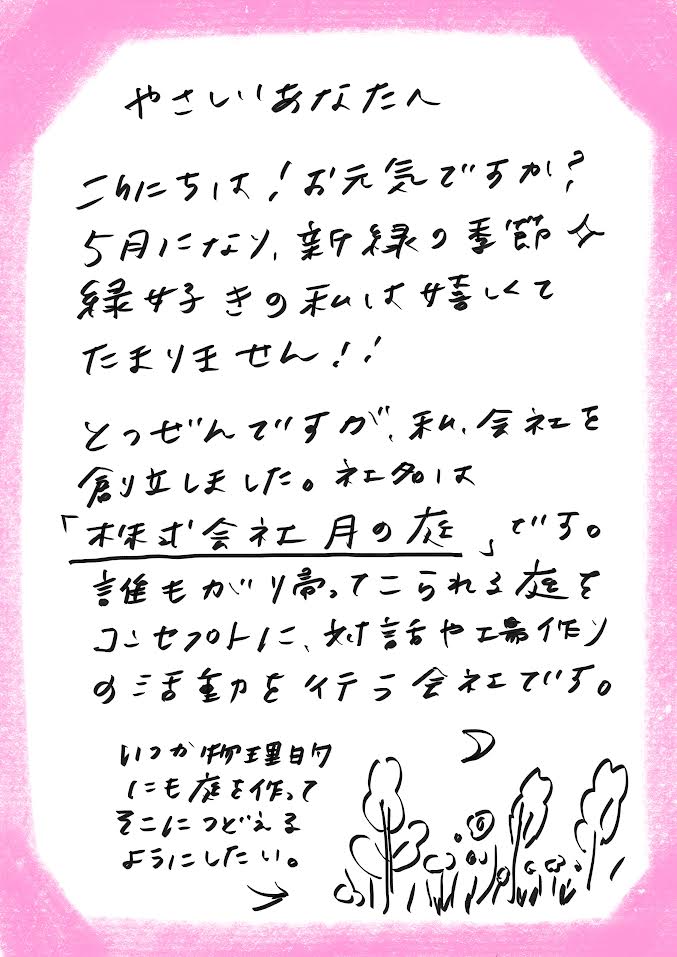 やさしいあなたへ
こんにちは！お元気ですか？
5月になり、新緑の季節✧
緑好きの私は嬉しくて
たまりません！！
とつぜんですが、私、会社を
創立しました。社名は
「株式会社月の庭」です。
誰もが帰ってこられる庭を
コンセプトに、対話や場作り
の活動を行う会社です。
いつか物理的
にも庭を作って
そこにつどえる
ようにしたい。